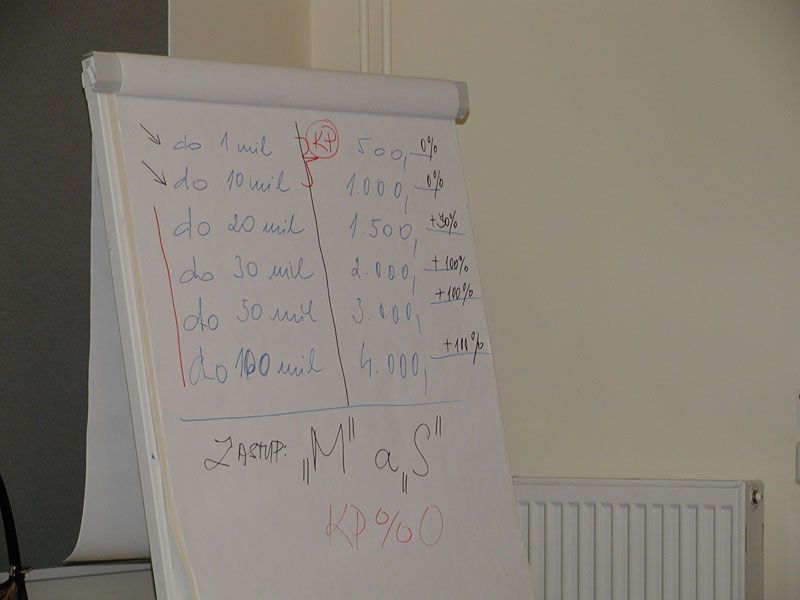 do 1 mil KP 500,- 0%
do 10 mil 1.000,- 0%
do 20 mil 1.500,- +30%
do 30 mil 2.000,- +100%
do 50 mil 3.000,- +100%
do 100 mil 4.000,- +111%
ZASTUP: „M" a „S"
KP%0